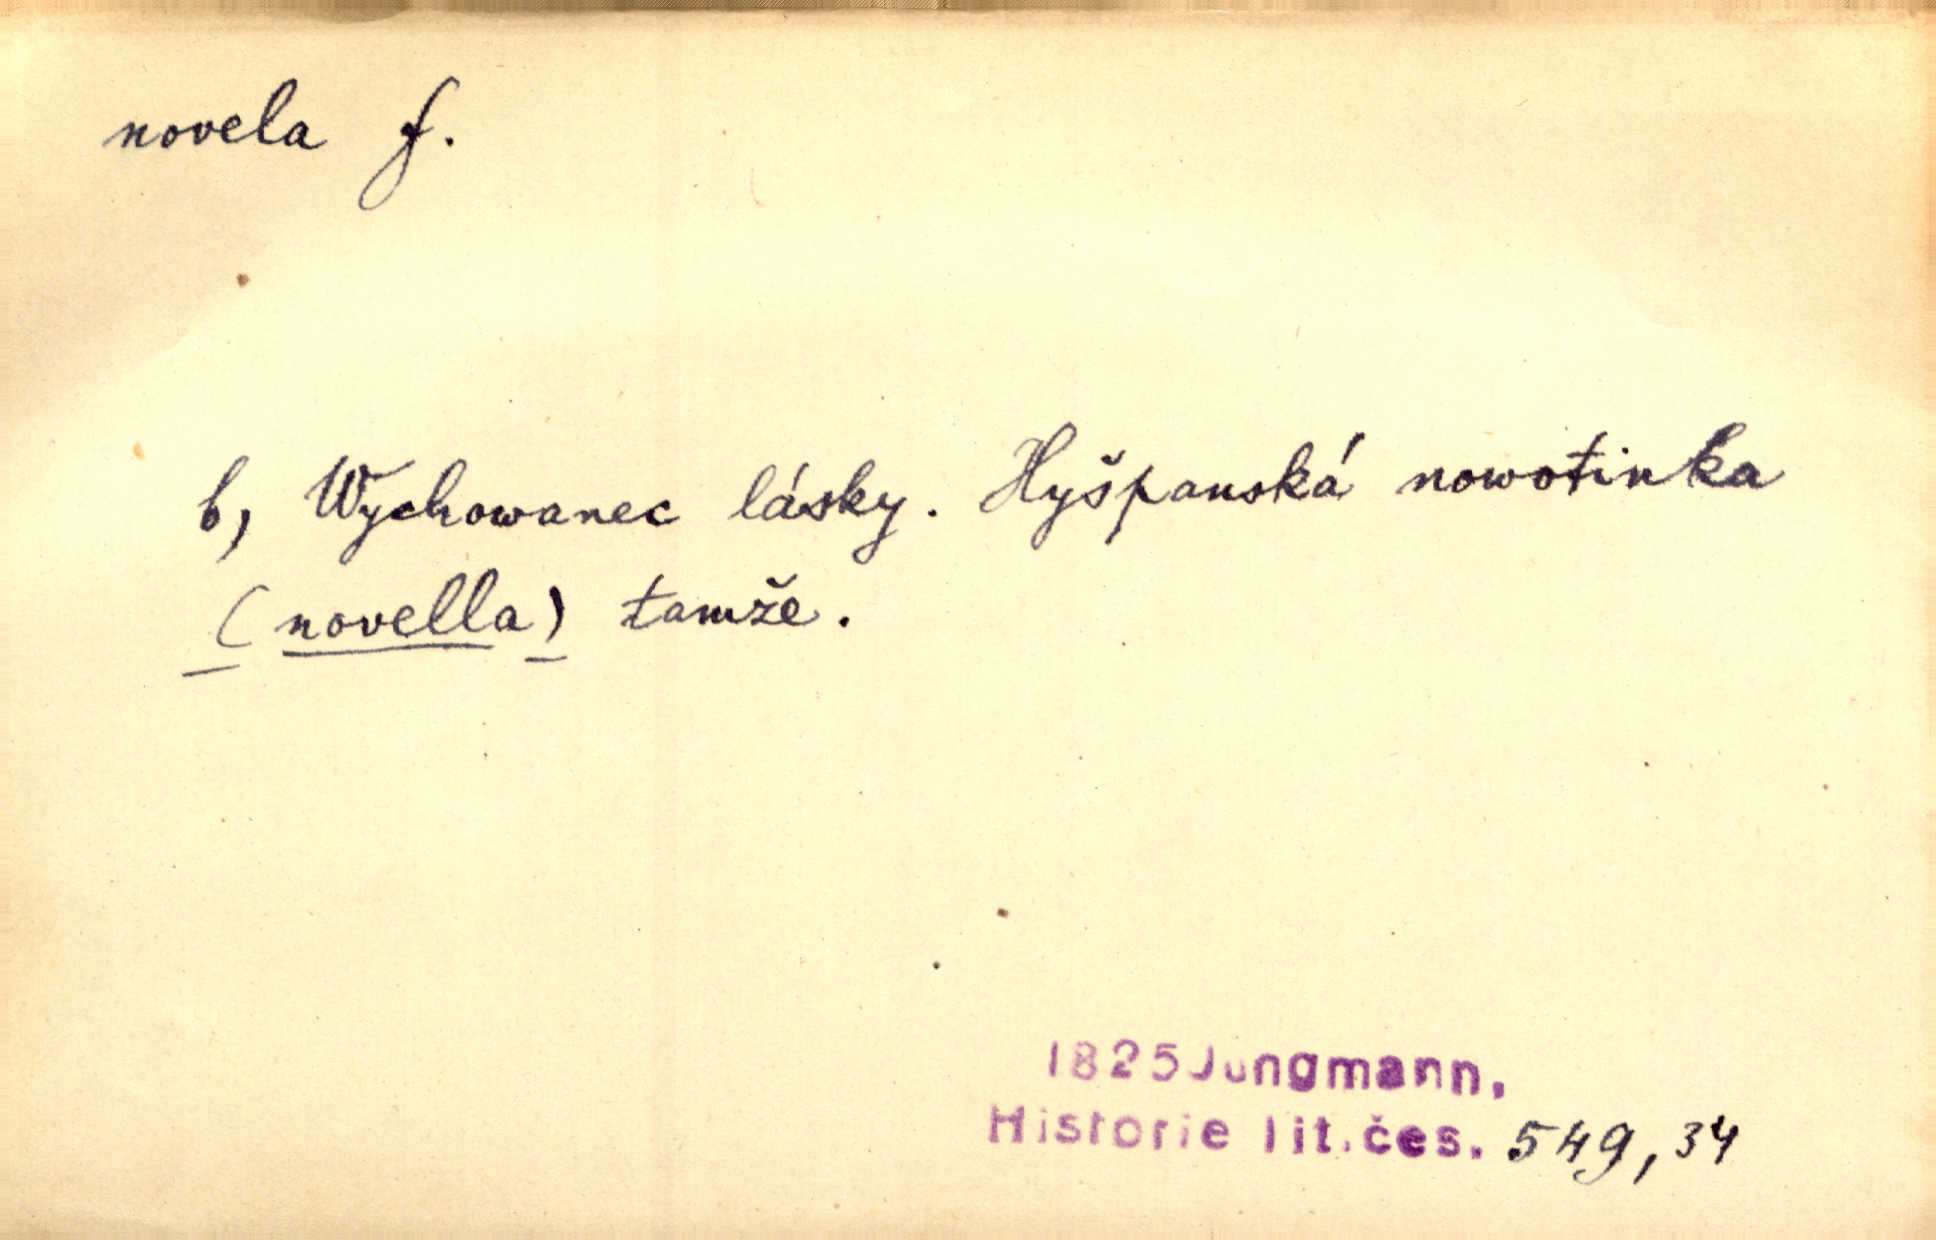 novela f.
b, Wychowanec lásky. Hyšpanská nowotinka
(novella) tamže.
1825 Jungmann,
Historie lit. čes. 549, 34